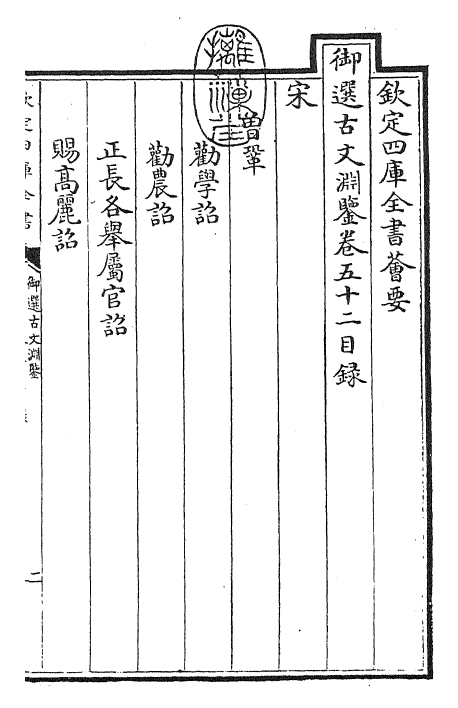 欽定四庫全書薈要
御選古文淵鑒卷五十二目録
宋
曾鞏
勸學詔
勸農詔
正長各舉屬官詔
賜高麗詔
欽定四庫全書
御選古文淵鑒